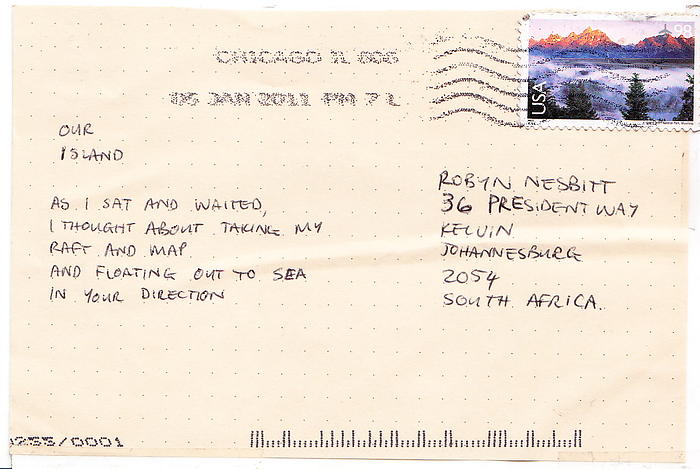 CHICAGO IL 606
05 JAN 2011 PM 7 L
98
USA
OUR
ISLAND
AS I SAT AND WAITED,
I THOUGHT ABOUT TAKING MY
RAFT AND MAP
AND FLOATING OUT TO SEA
IN YOUR DIRECTION
ROBYN NESBITT
36 PRESIDENT WAY
KELVIN
JOHANNESBURG
2054
SOUTH AFRICA.
0255/0001